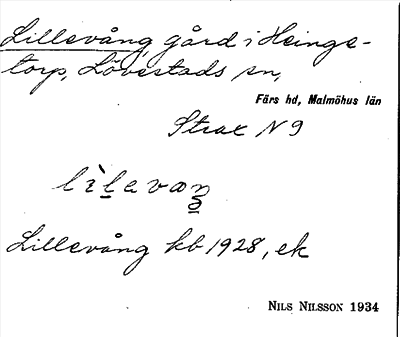 Lillevång, gård i Heinge-
torp, Lövestads sn,
Färs hd, Malmöhus län
Strax N 9
Lillevång kb 1928, ek
NILS NILSSON 1934